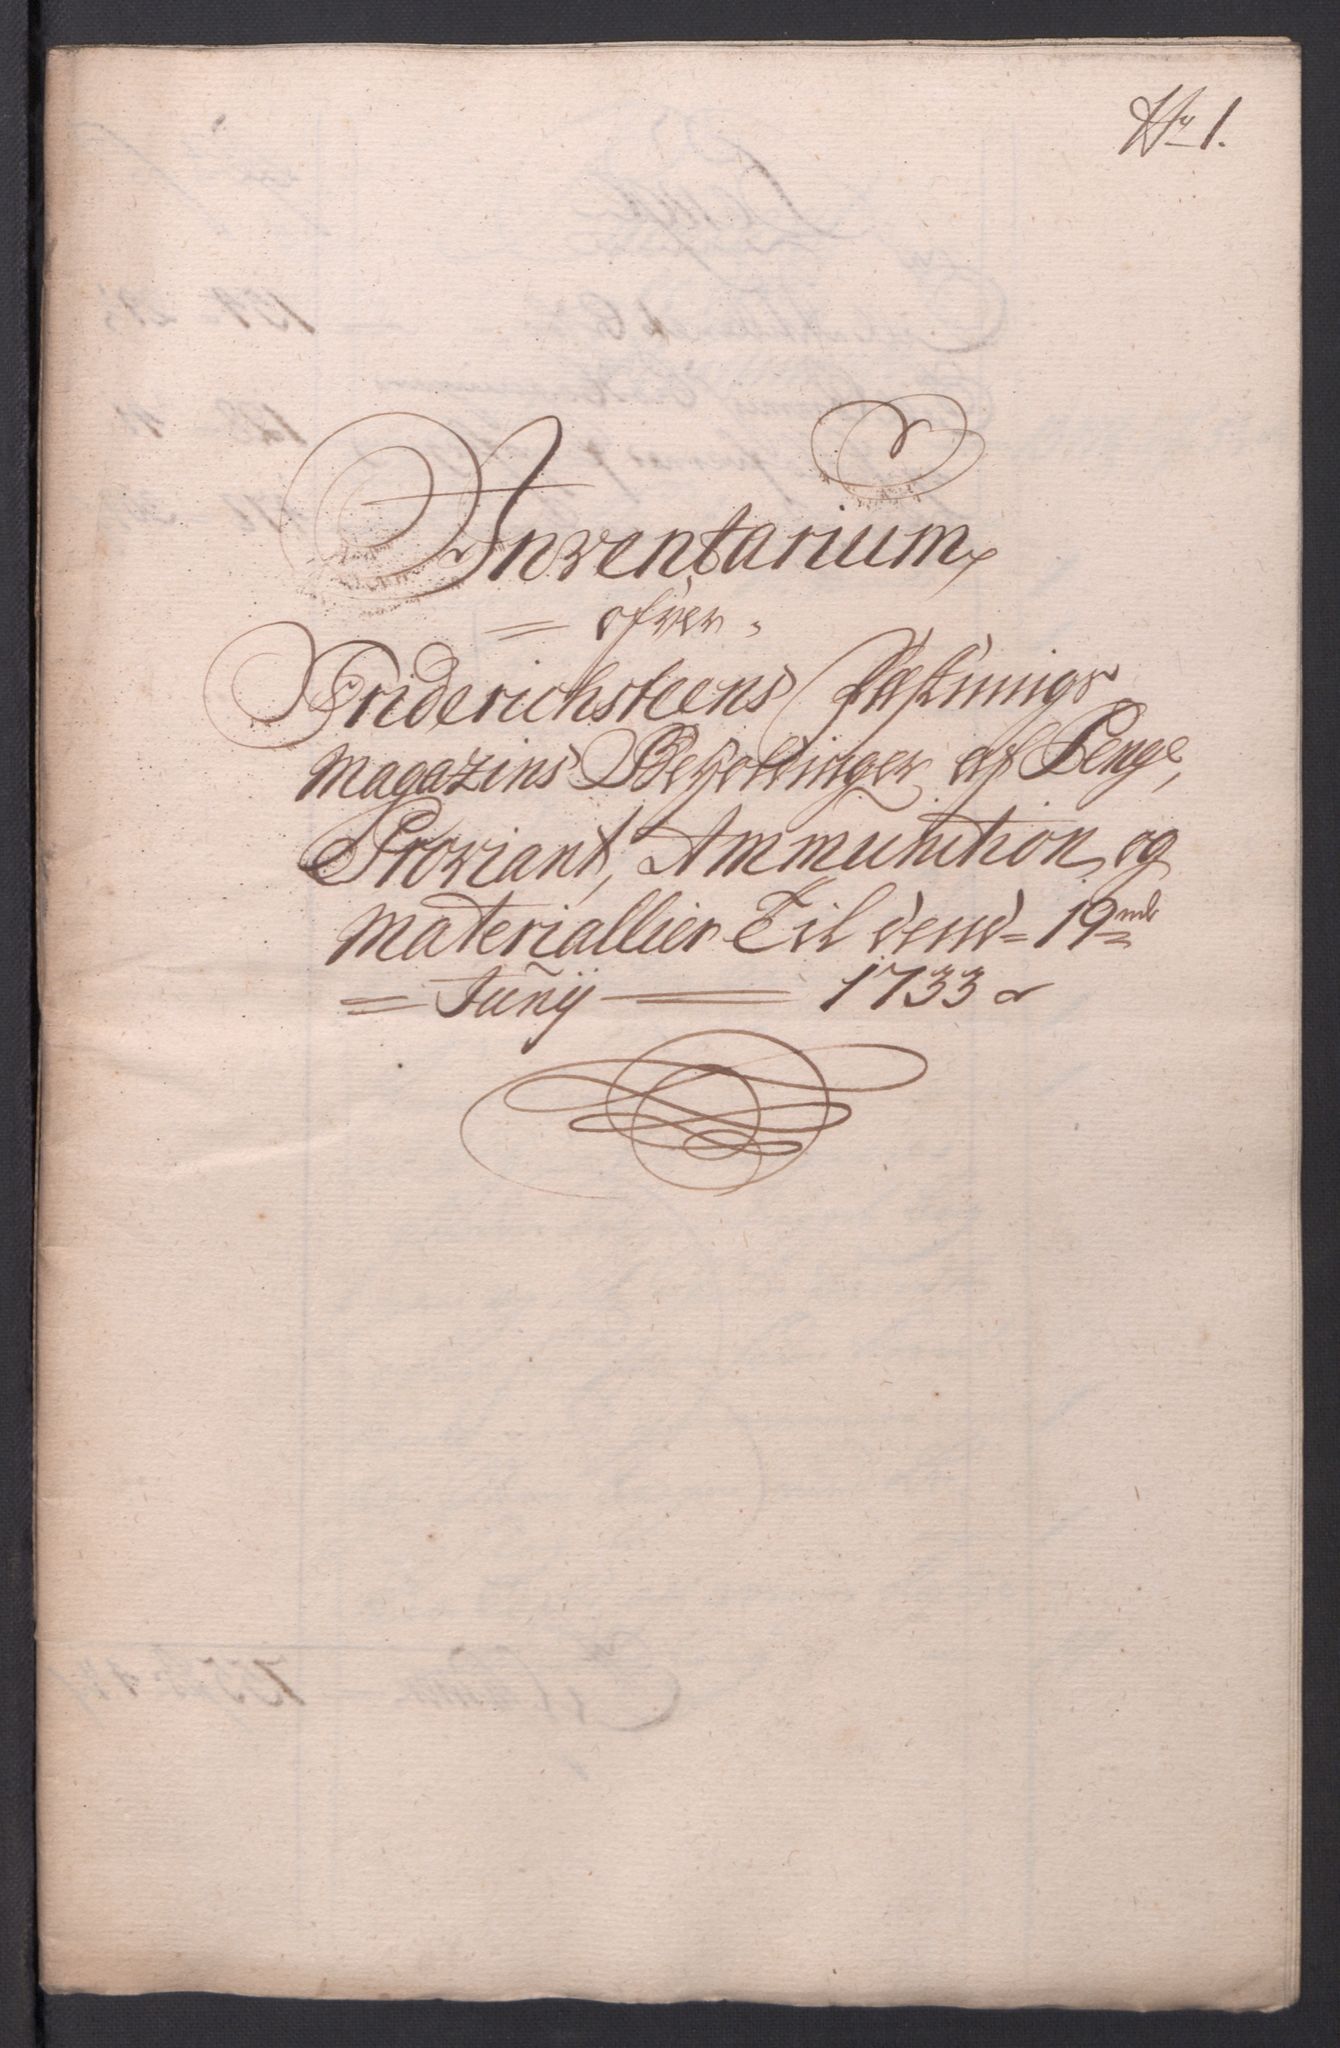 No 1.
Inventarium
ofver
Friderichsteens Fæstnings
Magazins Beholdninger af Penge,
Proviant, Ammunition og
Materiallier Til dend 19de
Junij 1733